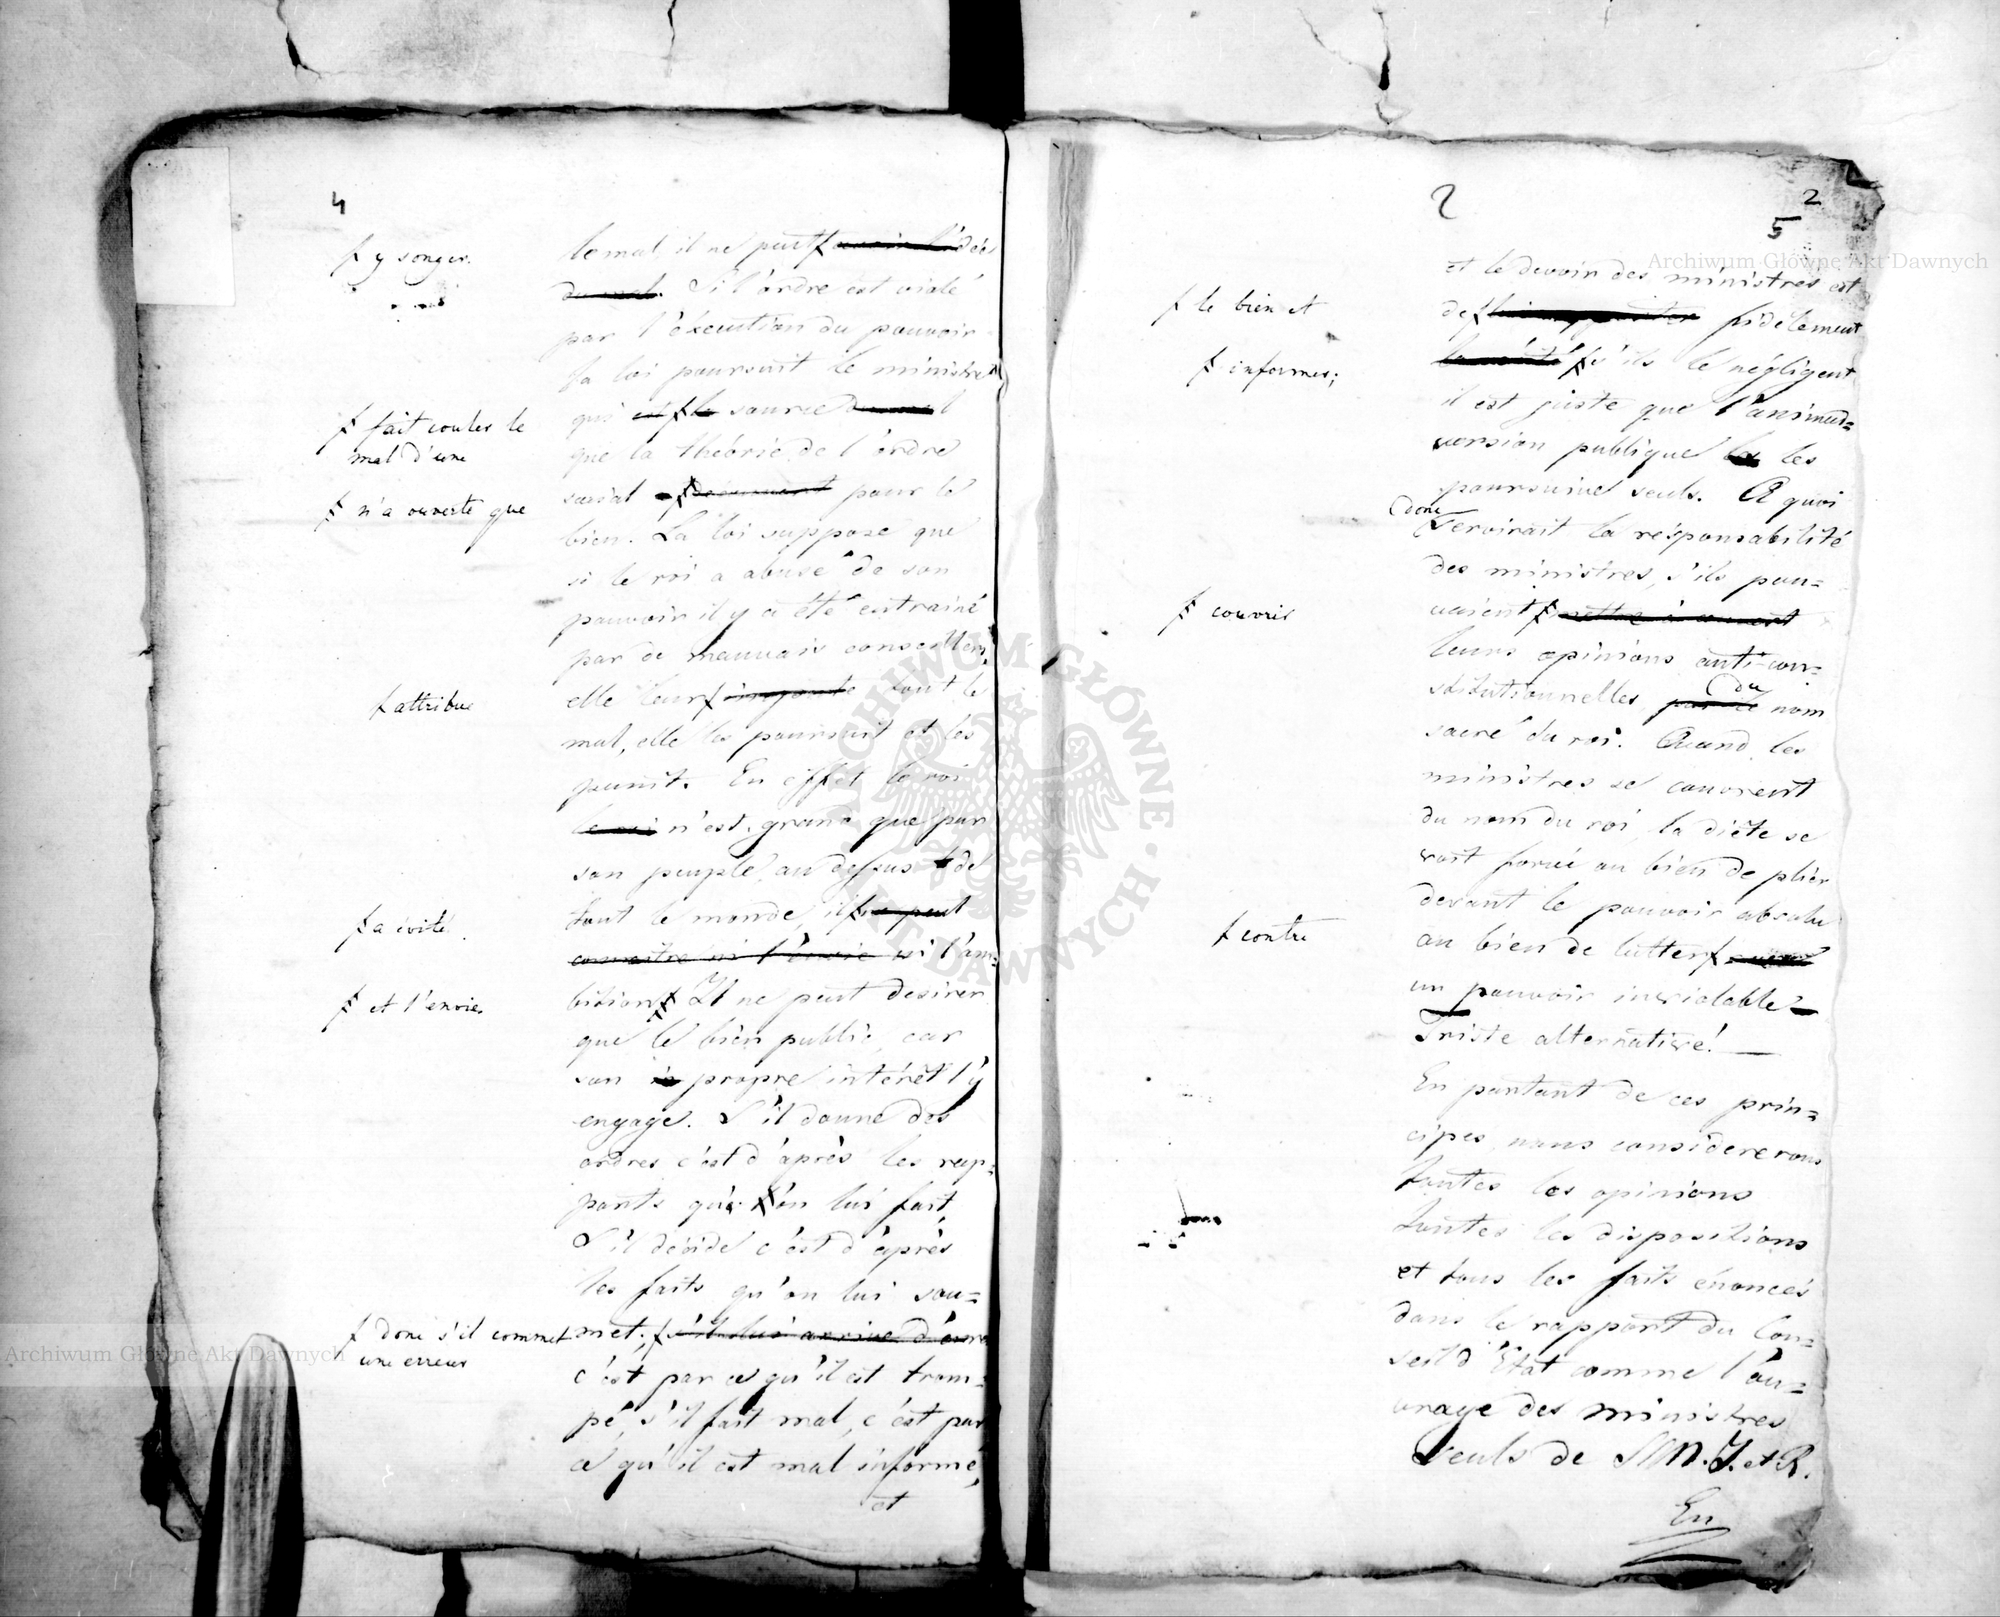 4
ƒ y songer.
le mal, il ne peut ƒ avoir l'idée
du mal. Si l'ordre est violé
par l'éxecution du pouvoir
la loi poursuit le ministre
qui est ƒ la source du mal
ƒ fait couler le
mal d'une
que la théorie de l'ordre
ƒ n'a ouverte que
social pour le
bien. La loi suppose que
si le roi a abusé de son
pouvoir il y a été entrainé
par de mauvais conseillers,
ƒ attribue
elle leur ƒ impute tout le
mal, elle les poursuit et les
punit. En effet le roi
le roi n'est grand que par
son peuple, au dessus de
ƒ a évité
tout le monde, il ƒ ne peut
connaitre ni l'envie ni l'am=
ƒ et l'envie.
bition ƒ Il ne peut desirer
que le bien public, car
son propre intérêt l'y
engage. S'il donne des
ordres c'est d'après les rap=
ports que l'on lui fait,
S'il décide c'est d'après
les faits qu'on lui sou=
ƒ donc s'il commet
une erreur
met; ƒ s'il lui arrive d'errer
c'est par ce qu'il est trom=
pé, s'il fait mal, c'est par
ce qu'il est mal informé,
et
2
2
5
et le devoir des ministres est
ƒ le bien et
de ƒ fidèlement
ƒ informer;
la vérité ƒ s'ils le négligent
il est juste que l'animad=
version publique les
poursuive seuls. A quoi
donc
serviroit la résponsabilité
des ministres, s'ils pou=
ƒ couvrir
vaient ƒ mettre à couvert
leurs opinions anti-con=
stitutionnelles, par le du nom
sacré du roi. Quand les
ministres se couvrent
du nom du roi, la diète se
voit forcée ou bien de plier
devant le pouvoir absolu
ƒ contre
ou bien de lutter ƒ
un pouvoir inviolable
Triste alternative! —
En partant de ces prin=
cipes, nous considererons
toutes les opinions
toutes les dispositions
et tous les faits énoncés
dans le rapport du Con=
seil d'Etat comme l'ou=
vrage des ministres
seuls de S.M.I. et R.
En
Archiwum Główne Akt Dawnych
Archiwum Główne Akt Dawnych
ARCHIWUM GŁÓWNE AKT DAWNYCH